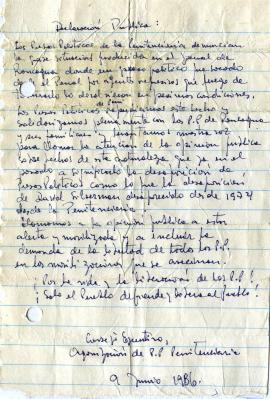 Declaración Pública:
Los Presos Políticos de la Penitenciaría denuncian
la grave situación producida en el penal de
Rancagua donde un preso político fue sacado
de el Penal por agentes represivos que luego de
lo devolvieron en pésimas condiciones.
Los Presos Políticos repudiamos este hecho y
solidarizamos plenamente con los P.P de Rancagua
y sus familiares y levantamos nuestra voz
para llamar la atención de la opinión pública
sobre hechos de esta naturaleza que ya en el
pasado a significado la desaparición de
Presos Políticos como lo fue la desaparición
de David Silberman desaparecido desde 1974
desde la Penitenciaría.
Llamamos a la opinión pública a estar
alerta y movilizada y a incluir la
demanda de la libertad de todos los P.P.
en las movilizaciones que se avecinan.
¡Por la vida y la liberación de los P.P!
¡Solo el Pueblo defiende y libera al pueblo!
Consejo Ejecutivo,
Organización de P.P Penitenciaría
9 Junio 1986.